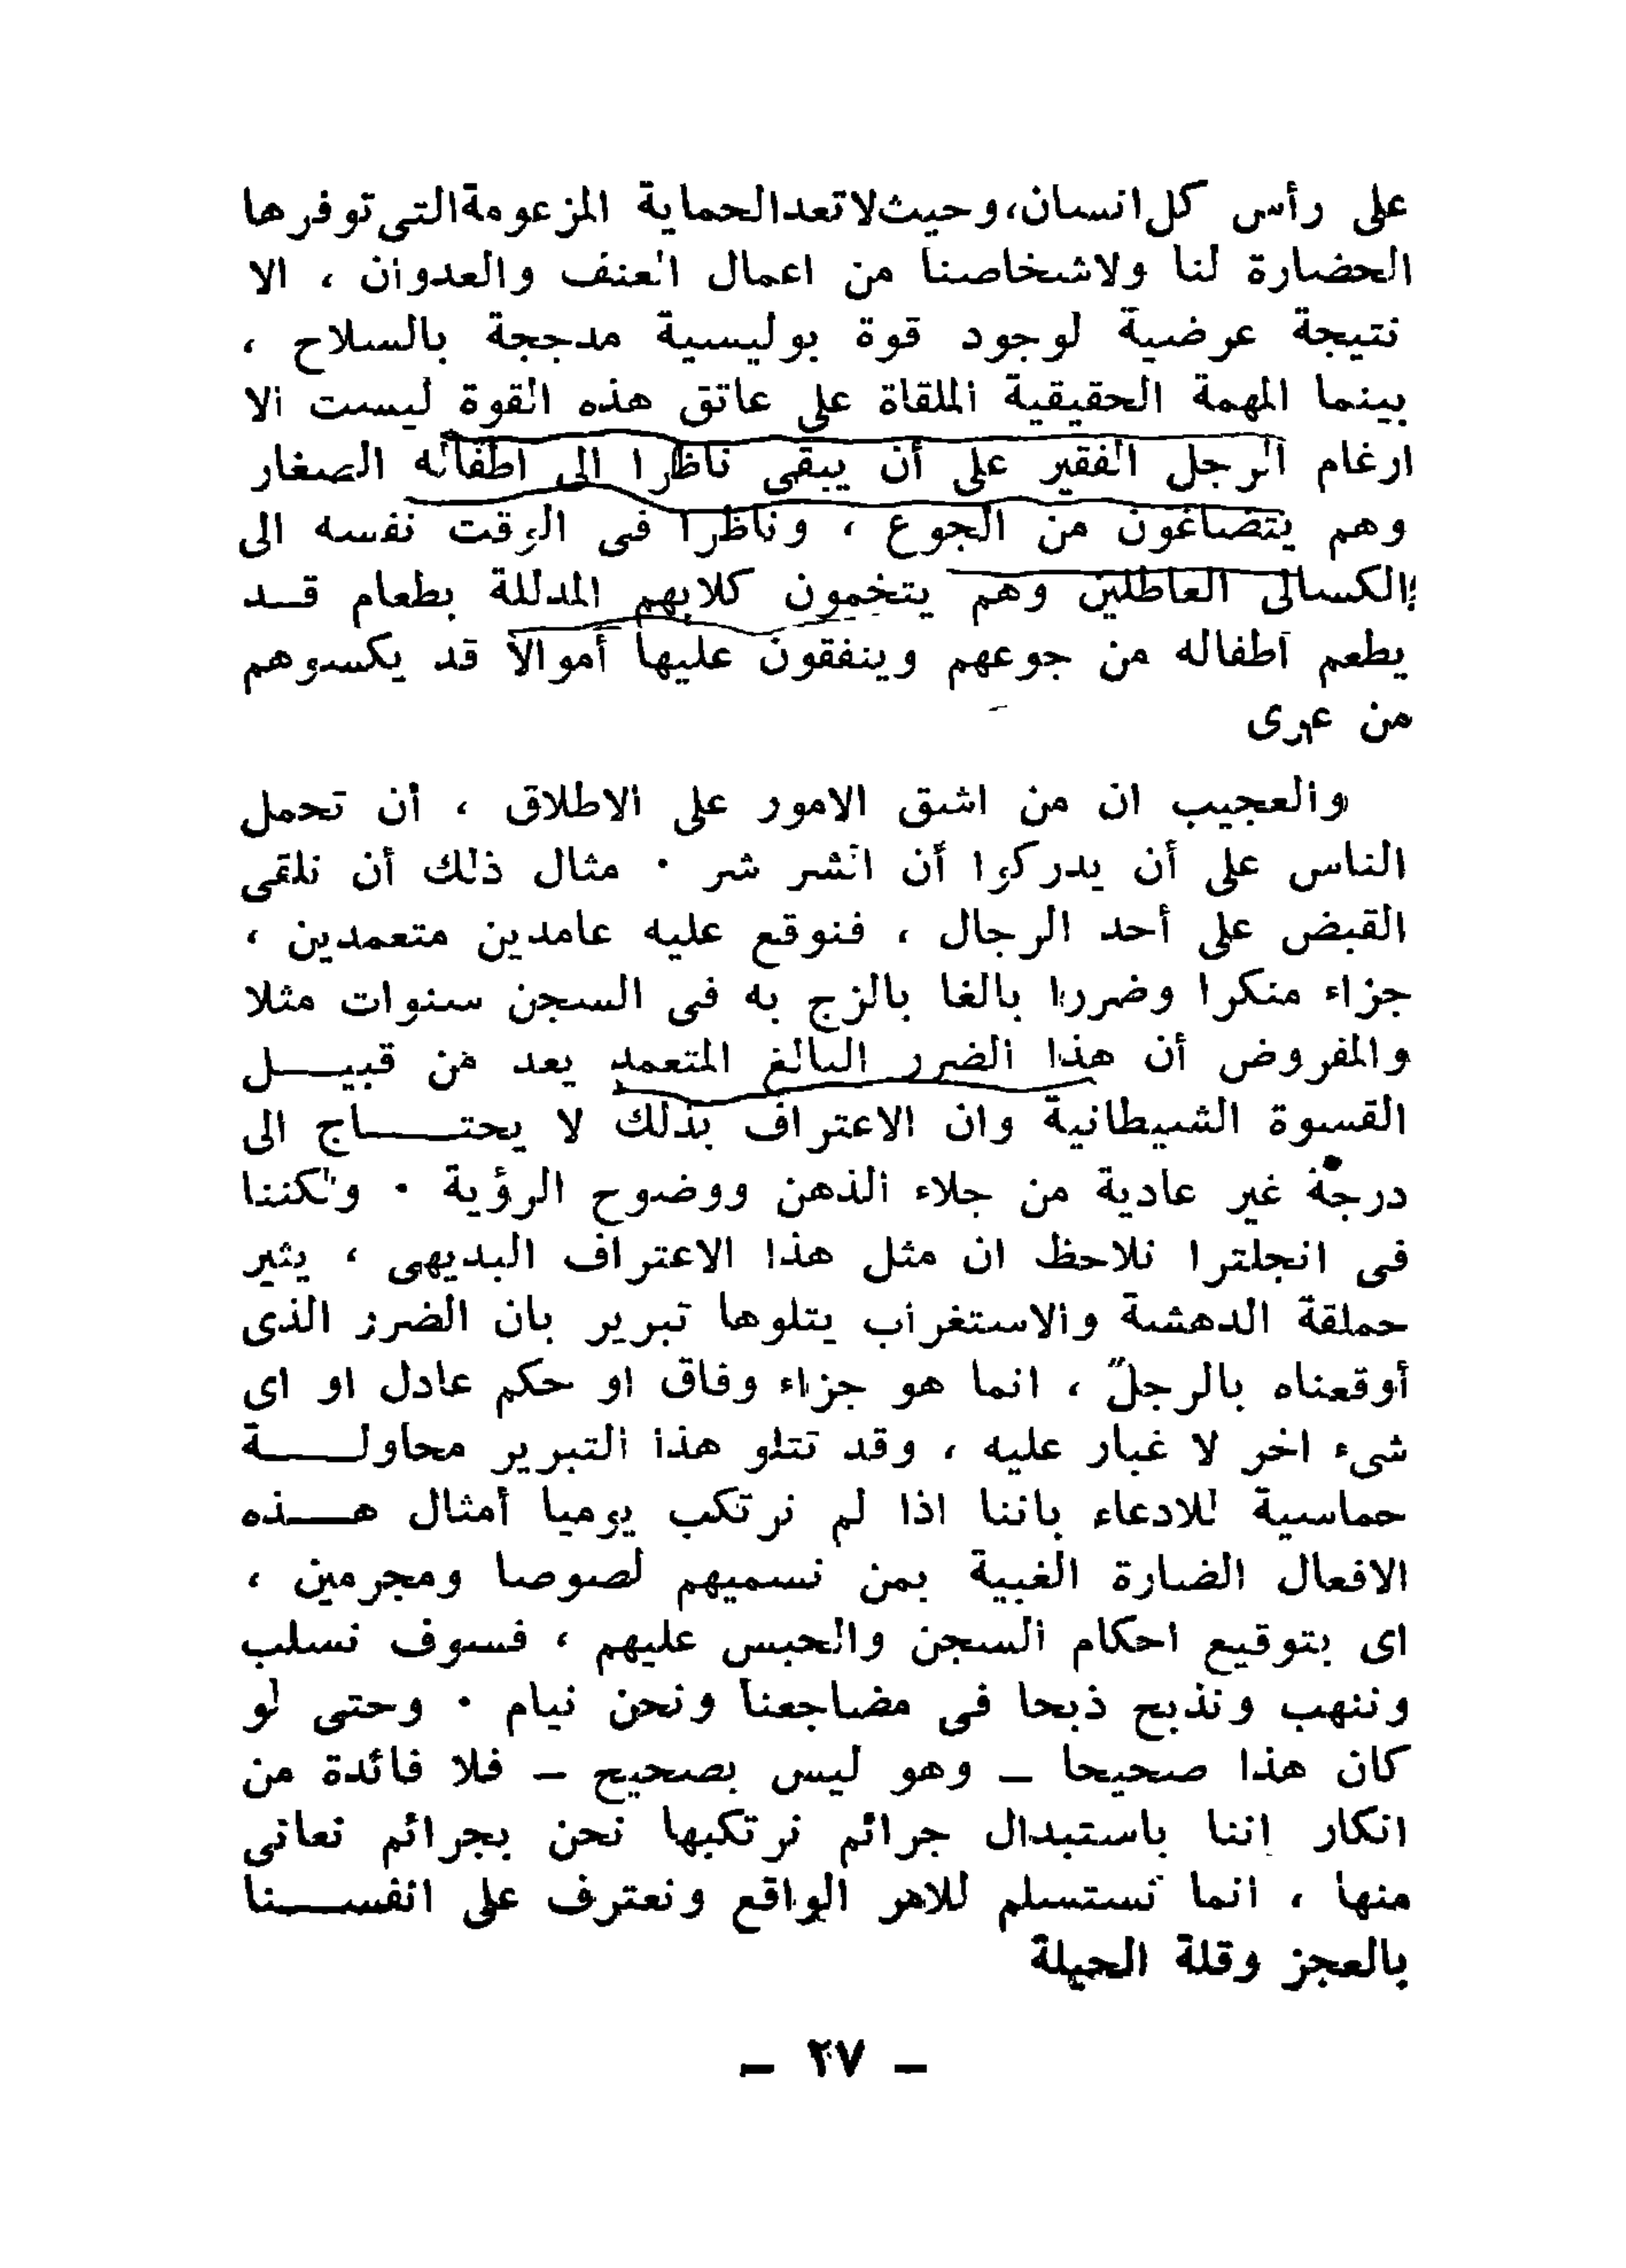 على رأس كل انسان، وحيث لا تعد الحماية المزعومة التى توفرها
الحضارة لنا ولاشخاصنا من اعمال العنف والعدوان ، الا
نتيجة عرضية لوجود قوة بوليسية مدججة بالسلاح ،
بينما المهمة الحقيقية الملقاة على عاتق هذه القوة ليست الا
ارغام الرجل الفقير على أن يبقى ناظرا الى اطفاله الصغار
وهم يتضاغون من الجوع ، وناظرا فى الوقت نفسه الى
الكسالى العاطلين وهم يتخمون كلابهم المدللة بطعام قد
يطعم اطفاله من جوعهم وينفقون عليها أموالا قد يكسوهم
من عرى
والعجيب ان من اشق الامور على الاطلاق ، أن تحمل
الناس على أن يدركوا أن الشر شر · مثال ذلك أن نلقى
القبض على أحد الرجال ، فنوقع عليه عامدين متعمدين ،
جزاء منكرا وضررا بالغا بالزج به فى السجن سنوات مثلا
والمفروض أن هذا الضرر البالغ المتعمد يعد من قبيل
القسوة الشيطانية وان الاعتراف بذلك لا يحتاج الى
درجة غير عادية من جلاء الذهن ووضوح الرؤية · ولكننا
فى انجلترا نلاحظ ان مثل هذا الاعتراف البديهى ، يثير
حملقة الدهشة والاستغراب يتلوها تبرير بان الضرر الذى
أوقعناه بالرجل ، انما هو جزاء وفاق او حكم عادل او اى
شىء اخر لا غبار عليه ، وقد تتلو هذا التبرير محاولة
حماسية للادعاء باننا اذا لم نرتكب يوميا أمثال هذه
الافعال الضارة الغبية بمن نسميهم لصوصا ومجرمين ،
اى بتوقيع احكام السجن والحبس عليهم ، فسوف نسلب
وننهب ونذبح ذبحا فى مضاجعنا ونحن نيام · وحتى لو
كان هذا صحيحا – وهو ليس بصحيح – فلا فائدة من
انكار اننا باستبدال جرائم نرتكبها نحن بجرائم نعانى
منها ، انما نستسلم للامر الواقع ونعترف على انفسنا
بالعجز وقلة الحيلة
– ٢٧ –